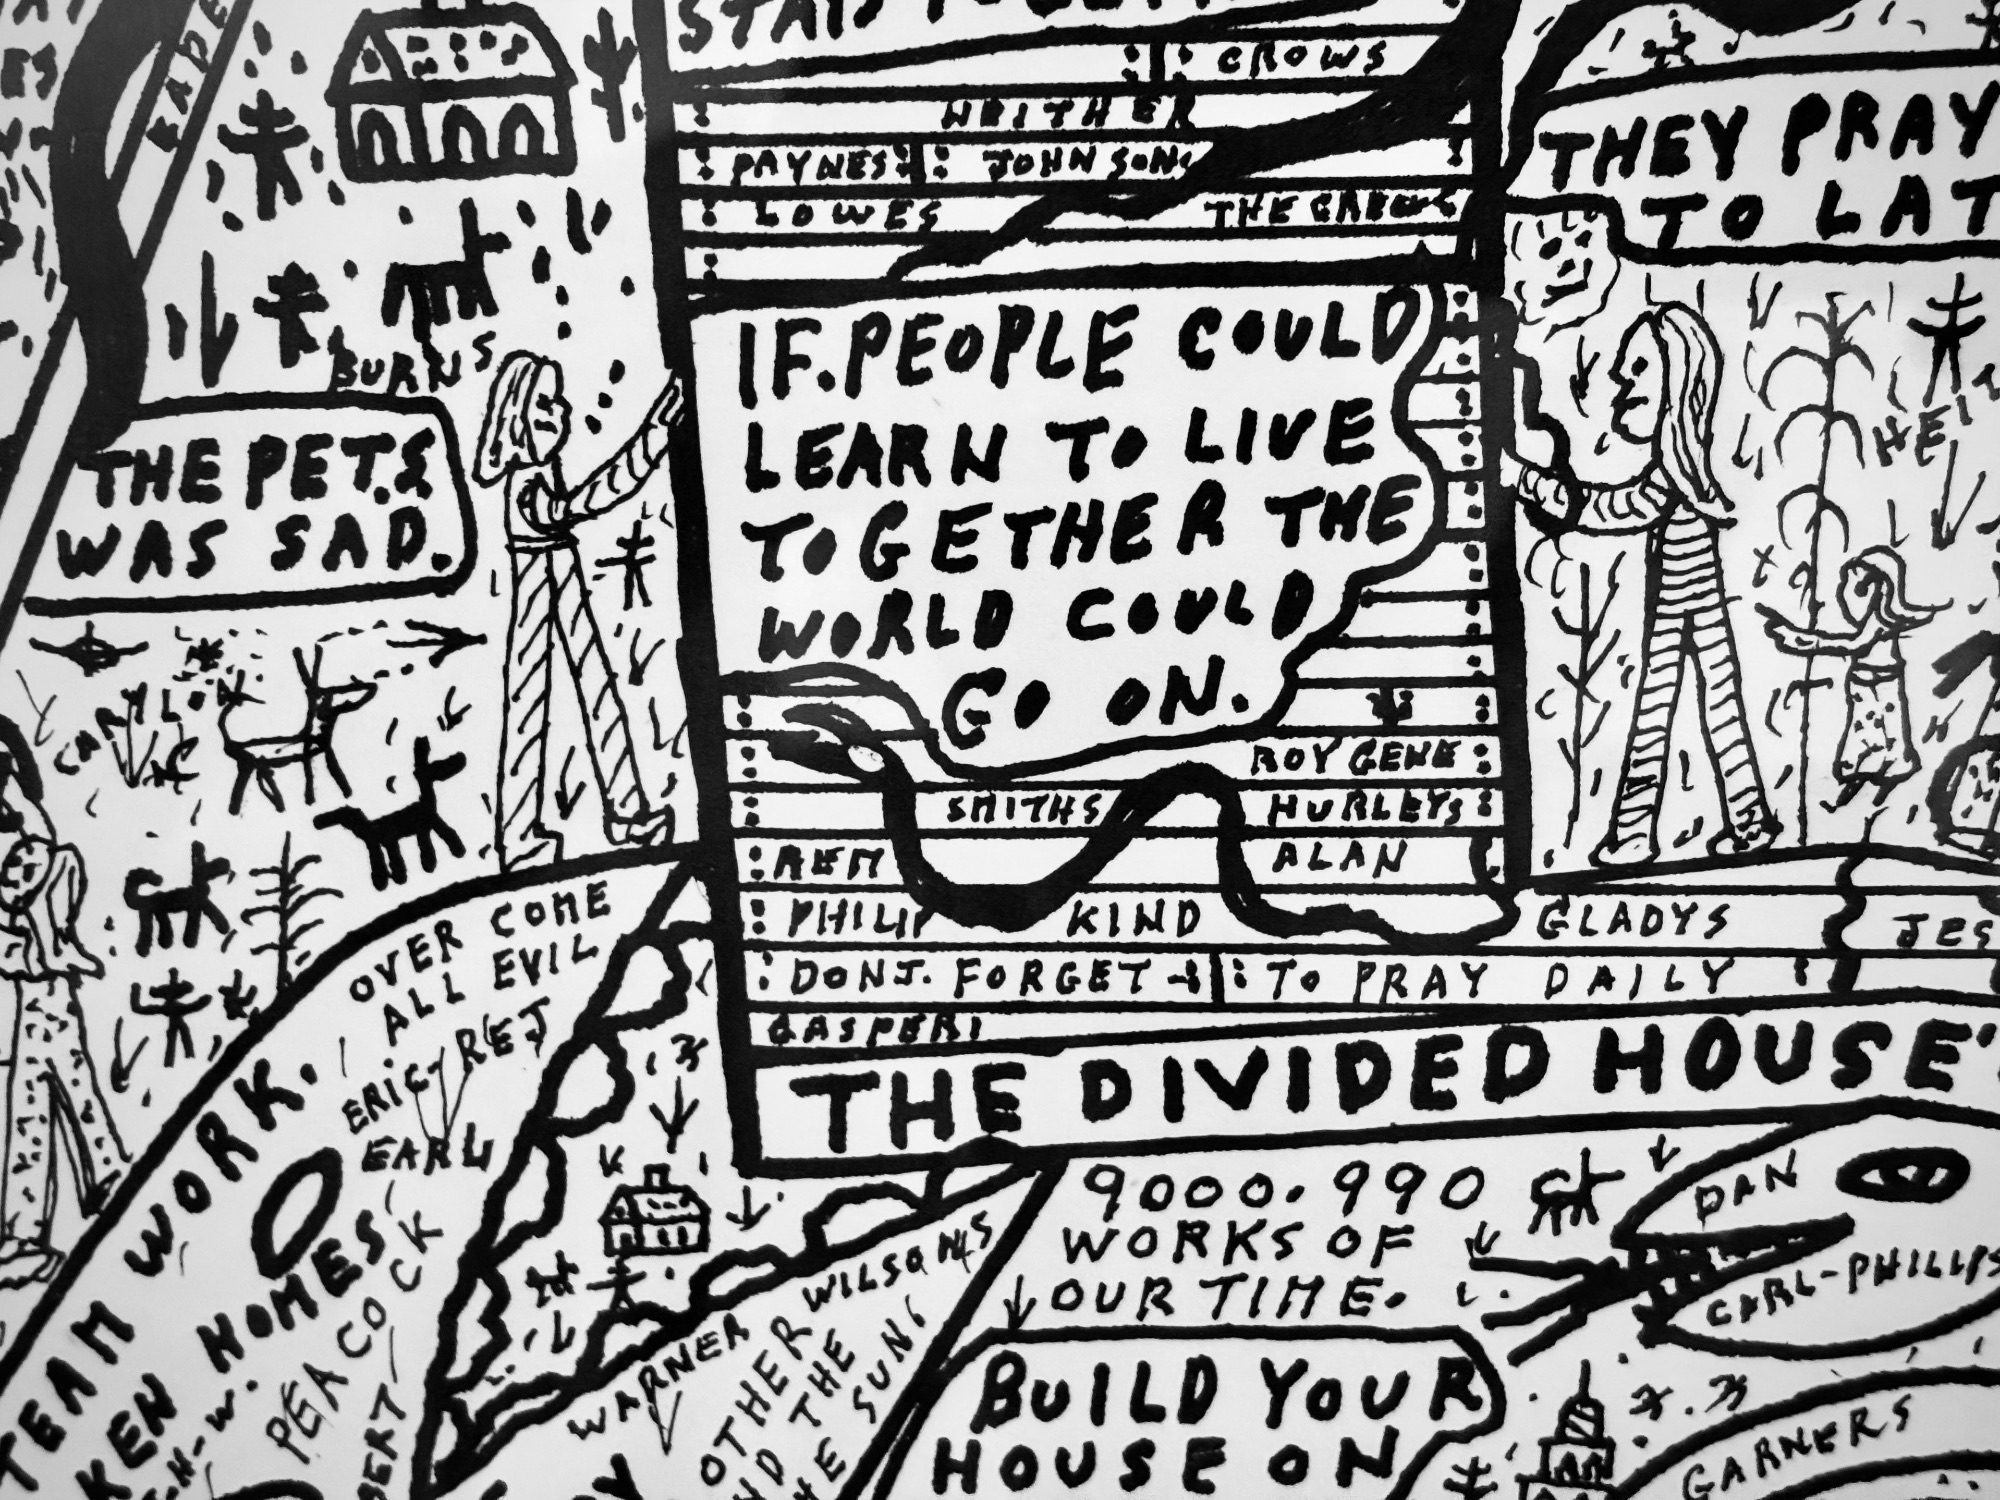 CROWS
NEITHER
PAYNES JOHNSONS
LOWES
THEY PRAY
TO LAT
IF. PEOPLE COULD
LEARN TO LIVE
TOGETHER THE
WORLD COULD
GO ON.
BURNS
THE PETS
WAS SAD.
ROY GENE
SMITHS HURLEYS
ALAN
PHILIP KIND GLADYS
JES
DONT. FORGET TO PRAY DAILY
GASPERI
THE DIVIDED HOUSE
OVER COME
ALL EVIL
ERIC REJ
EARL
TEAM WORK.
KEN HOMES
PEACOCK
BERT
WARNER WILSONS
OTHER
THE
SUN
9000.990
WORKS OF
OUR TIME.
DAN
CARL-PHILLIPS
BUILD YOUR
HOUSE ON
GARNERS